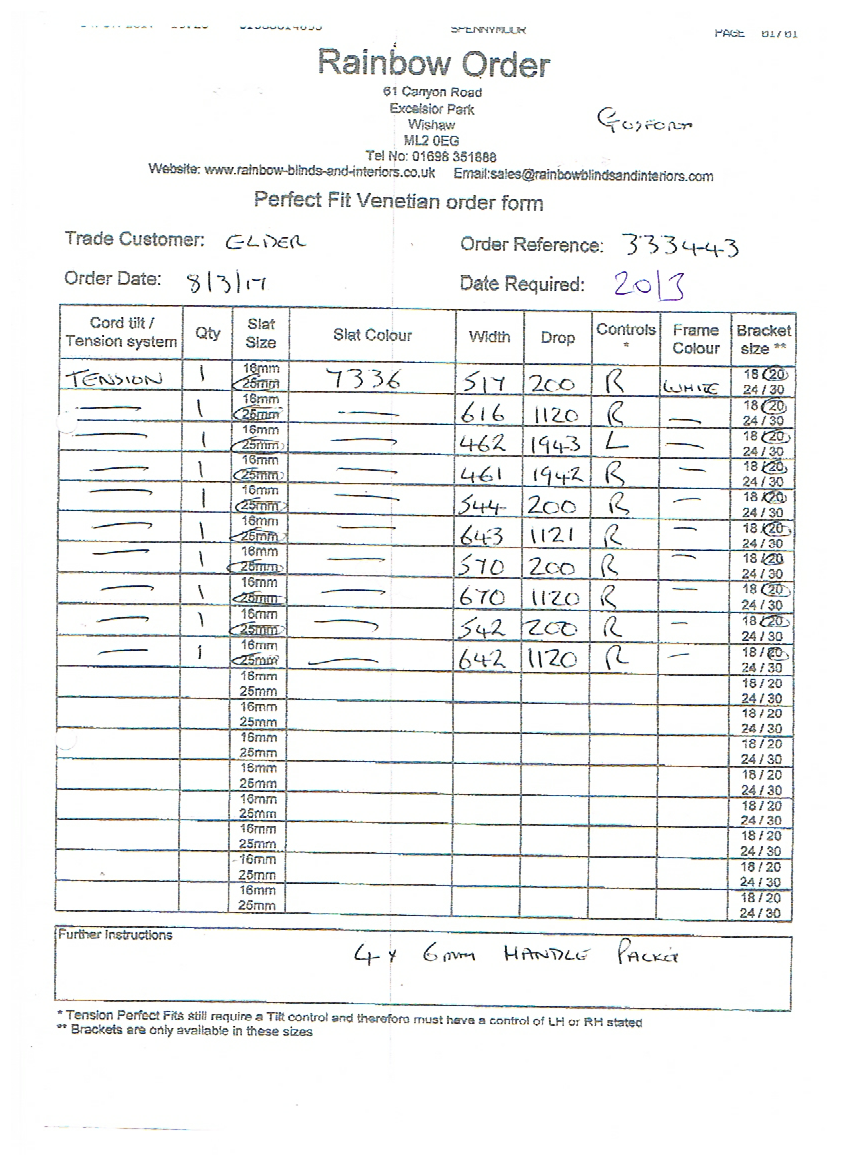 SPENNYMOOR PAGE 01/01
Rainbow Order
61 Canyon Road
Excelsior Park
Wishaw
ML2 0EG
Tel No: 01698 351888
Gosforth
Website: www.rainbow-blinds-and-interiors.co.uk Email:sales@rainbowblindsandinteriors.com
Perfect Fit Venetian order form
Trade Customer: ELDER Order Reference: 333443
Order Date: 8/3/17 Date Required: 20/3
Cord tilt / Tension system Qty Slat Size Slat Colour Width Drop Controls * Frame Colour Bracket size **
TENSION 1 16mm 25mm 7336 517 200 R WHITE 18 / 20 24 / 30
— 1 16mm 25mm — 616 1120 R — 18 / 20 24 / 30
— 1 16mm 25mm — 462 1943 L — 18 / 20 24 / 30
— 1 16mm 25mm — 461 1942 R — 18 / 20 24 / 30
— 1 16mm 25mm — 544 200 R — 18 / 20 24 / 30
— 1 16mm 25mm — 643 1121 R — 18 / 20 24 / 30
— 1 16mm 25mm — 570 200 R — 18 / 20 24 / 30
— 1 16mm 25mm — 670 1120 R — 18 / 20 24 / 30
— 1 16mm 25mm — 542 200 R — 18 / 20 24 / 30
— 1 16mm 25mm — 642 1120 R — 18 / 20 24 / 30
16mm 25mm 18 / 20 24 / 30
16mm 25mm 18 / 20 24 / 30
16mm 25mm 18 / 20 24 / 30
16mm 25mm 18 / 20 24 / 30
16mm 25mm 18 / 20 24 / 30
16mm 25mm 18 / 20 24 / 30
16mm 25mm 18 / 20 24 / 30
16mm 25mm 18 / 20 24 / 30
Further Instructions
4 x 6mm HANDLE PACKET
* Tension Perfect Fits still require a Tilt control and therefore must have a control of LH or RH stated
** Brackets are only available in these sizes